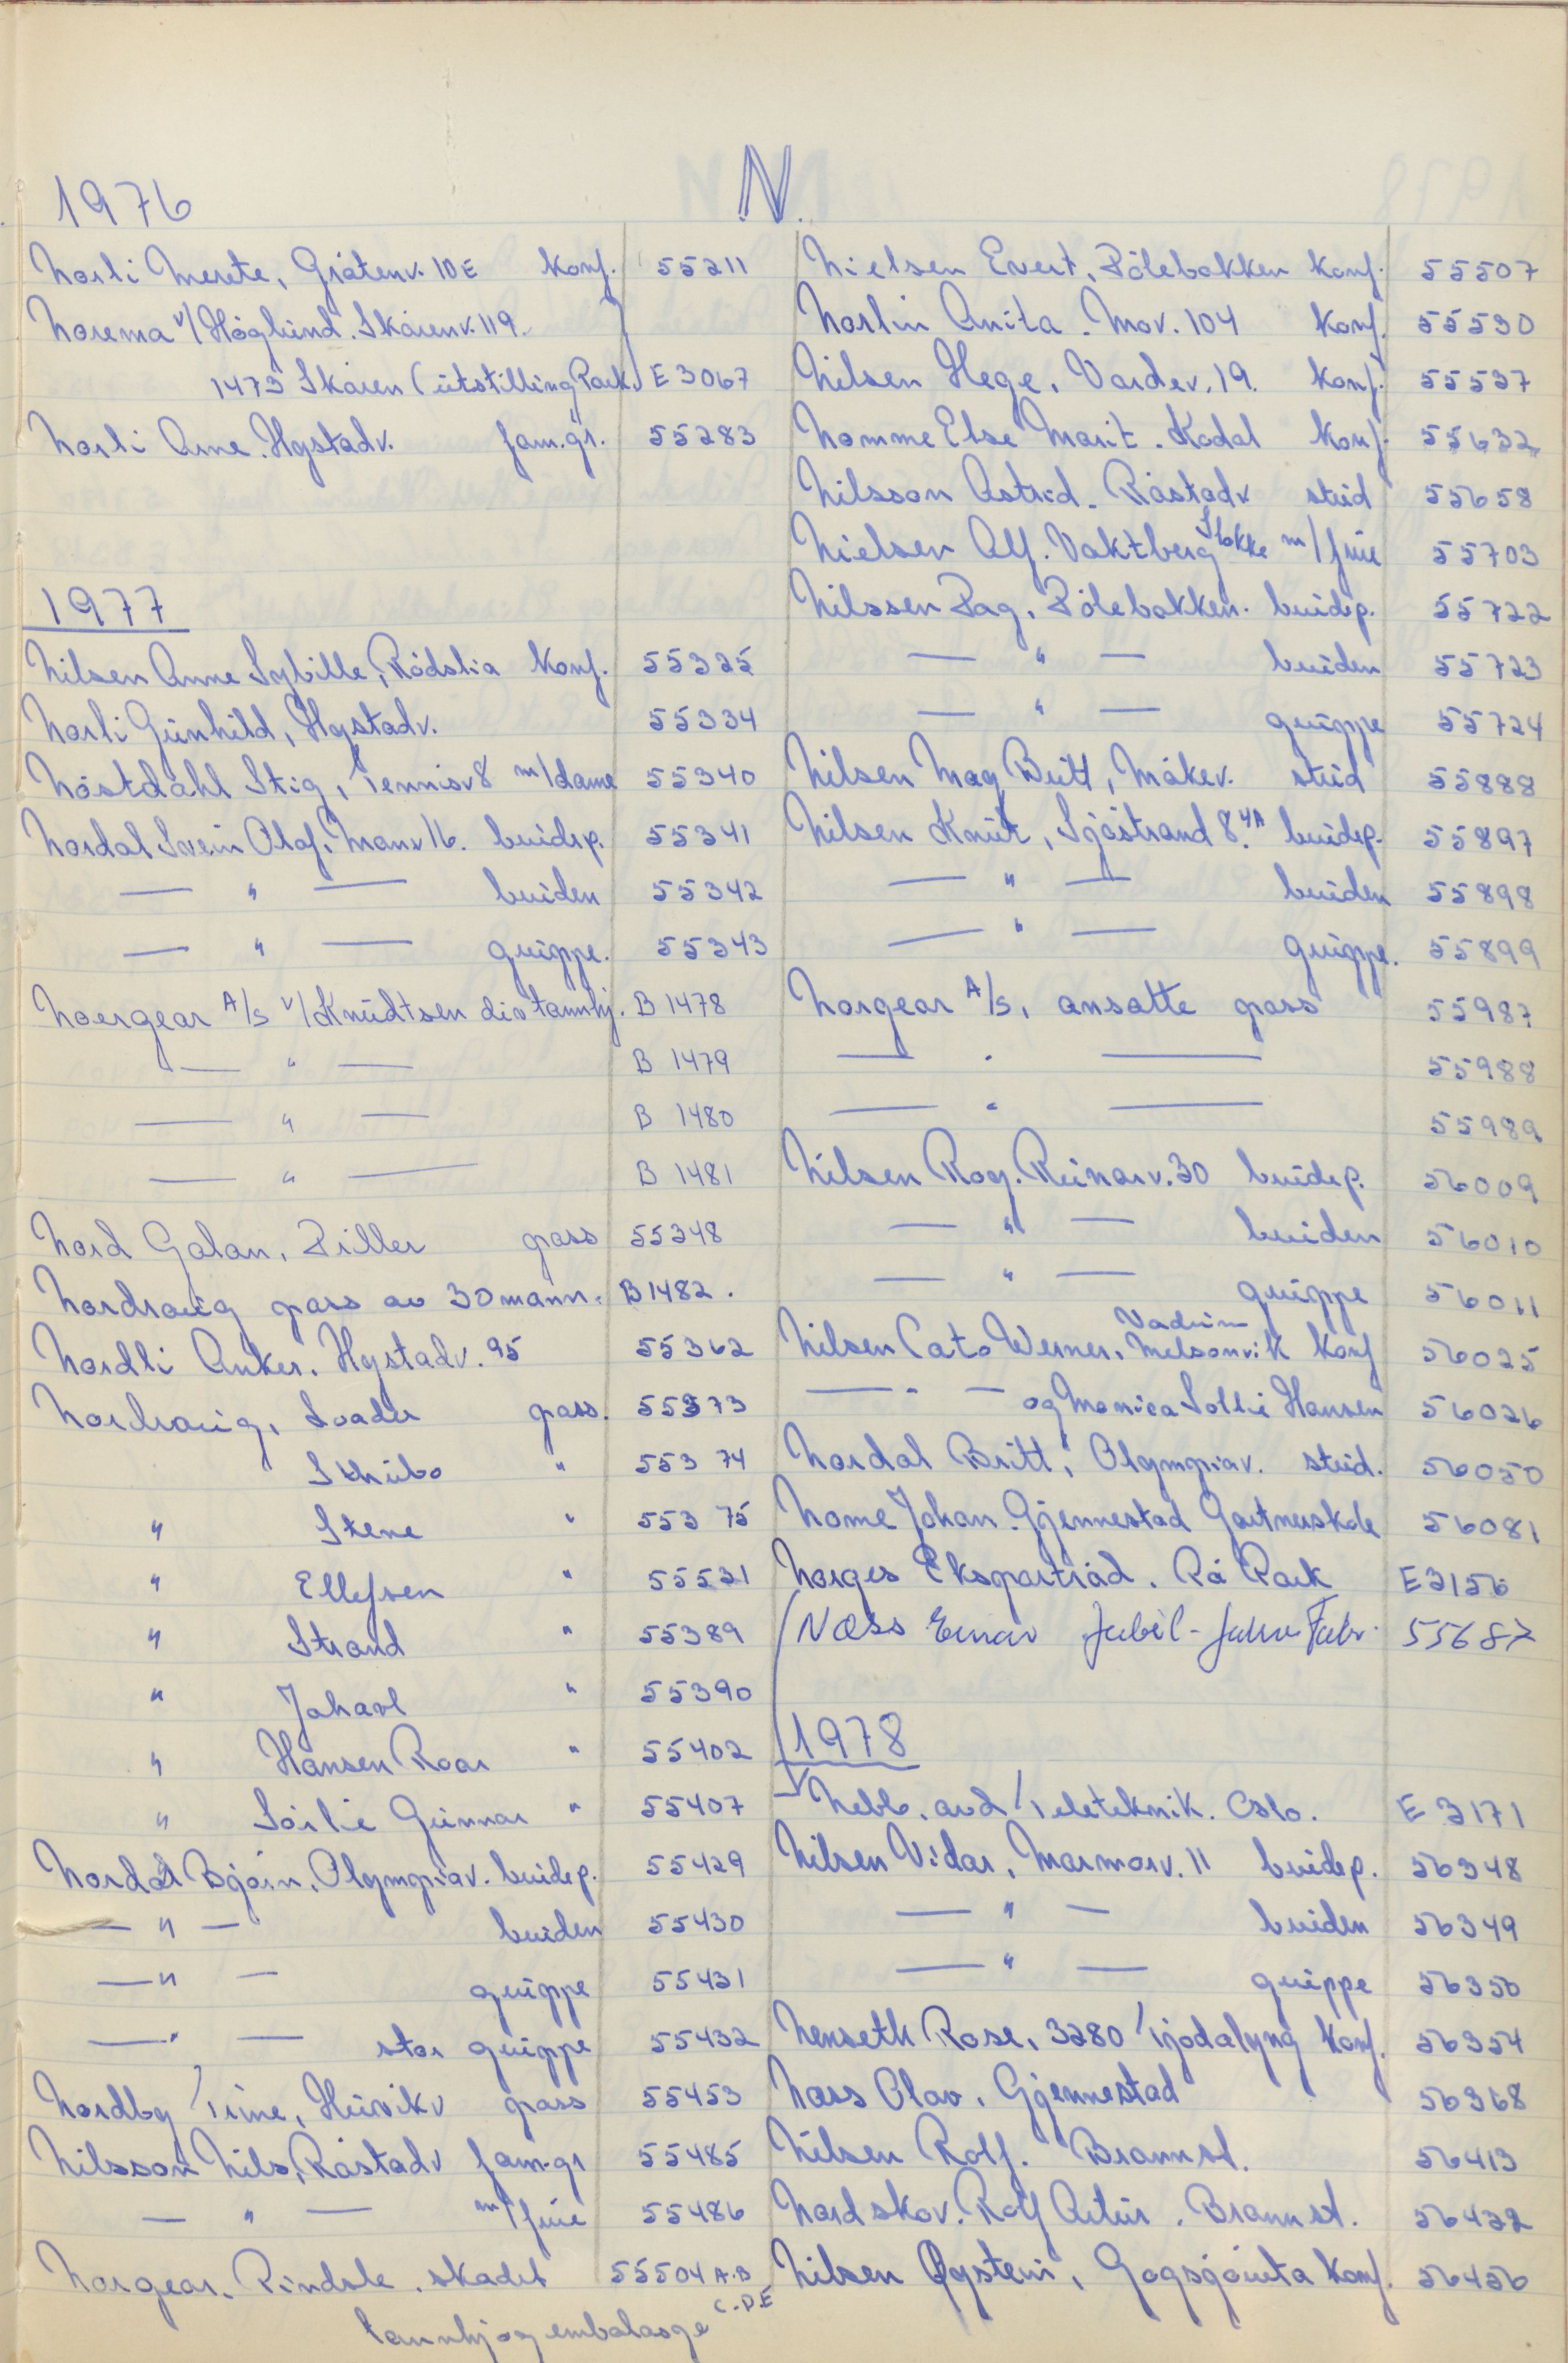 N.
1976
Norli Merete, Gråtenv. 10E konf. 55211
Norema v/ Höglund. Skårenv. 119.
1473 Skåren (utstilling Park.) E 3067
Norli Arne. Hystadv. fam.gr. 55283
1977
Nilsen Anne Sybille, Rødslia konf. 55325
Norli Gunhild, Hystadv. 55334
Nöstdahl Stig, Tennisv 8 m/dame 55340
Nordal Svein Olaf. Monv 16. brudep. 55341
— " — bruden 55342
— " — gruppe. 55343
Noergear A/s v/Knudtsen div tannhj. B 1478
— " — B 1479
— " — B 1480
— " — B 1481
Nord Galan, Piller pass 55348
Nordraug pass av 30 mann. B 1482.
Nordli Anker. Hystadv. 95 55362
Nordraug, Svader pass. 55373
Skhibo " 55374
" Stene " 55375
" Ellefsen " 55531
" Strand " 55389
" Joharl " 55390
" Hansen Roar " 55402
" Sörlie Gunnar " 55407
Nordal Björn. Olympiav. brudep. 55429
— " — bruden 55430
— " — gruppe 55431
— " — stor gruppe 55432
Nordby Trine, Huvikv pass 55453
Nilsson Nils, Råstadv fam.gr 55485
— " — m/frue 55486
Norgear. Rindsle. skadet 55504 A.B
tannhj og embalasge C.D.E
Nielsen Evert, Pölebakken konf. 55507
Norlin Anita. Mov. 104 konf. 55530
Nilsen Hege, Vardev. 19. konf. 55537
Nomme Else Marit. Kodal konf. 55632
Nilsson Astrid. Råstadv stud 55658
Nielsen Alf. Vaktberg Stokke m/frue 55703
Nilssen Dag, Pölebakken. brudep. 55722
— " — bruden 55723
— " — gruppe 55724
Nilsen May Britt, Måkev. stud 55888
Nilsen Knut, Sjöstrand 8. 4A brudep. 55897
— " — bruden 55898
— " — gruppe. 55899
Norgear A/s, ansatte pass 55987
— " — 55988
— " — 55989
Nilsen Roy. Ruinarv. 30 brudep. 56009
— " — bruden 56010
— " — gruppe 56011
Nilsen Cato Werner. Vadum Melsomvik konf 56025
— " — og Monica Sollie Hansen 56026
Nordal Britt, Olympiav. stud. 56050
Nome Johan. Gjennestad Gartnerskole 56081
Norges Eksportråd. På Park E 3156
Næss Einar Jubil- 55687
1978
Nebb. avd Teleteknik. Oslo. E 3171
Nilsen Vidar, Marmorv. 11 brudep. 56348
— " — bruden 56349
— " — gruppe 56350
Nenseth Rose, 3280 Tjodalyng konf. 56354
Næss Olav, Gjennestad 56368
Nilsen Rolf. Brannst. 56413
Nordskov. Rolf Artur. Brannst. 56432
Nilsen Øystein, Gogsjöruta konf. 56456